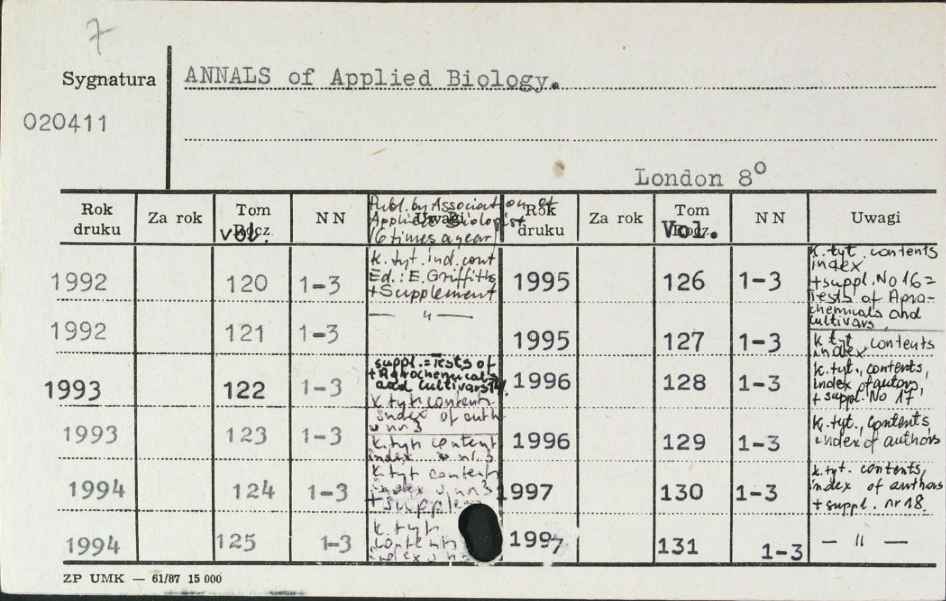 7
Sygnatura ANNALS of Applied Biology.
020411
London 8°
Rok druku Za rok Tom Rocz. Vol. NN Uwagi Rok druku Za rok Tom Rocz. Vol. NN Uwagi
Publ. by Association of
Applied Biologist
6 times a year
1992 120 1-3 k. tyt. ind. cont
Ed.: E. Griffiths
+Supplement
1992 121 1-3 — " —
1993 122 1-3 suppl. = Tests of
+ Agrochemicals
and cultivars
k. tyt. contents
index of auth
w nr 3
1993 123 1-3 k. tyt. content
index w nr. 3
1994 124 1-3 k. tyt contents
index w nr 3
+ supplem
1994 125 1-3 k. tyt.
contents
index w nr
1995 126 1-3 k. tyt. contents
index
+suppl. No 16 =
Tests of Agro-
chemicals and
cultivars
1995 127 1-3 k. tyt., contents
index
1996 128 1-3 k. tyt., contents,
index of autors,
+ suppl. No 17
1996 129 1-3 k. tyt., contents,
index of authors
1997 130 1-3 k. tyt. contents,
index of authors
+ suppl. nr 18.
1997 131 1-3 — " —
ZP UMK — 61/87 15 000